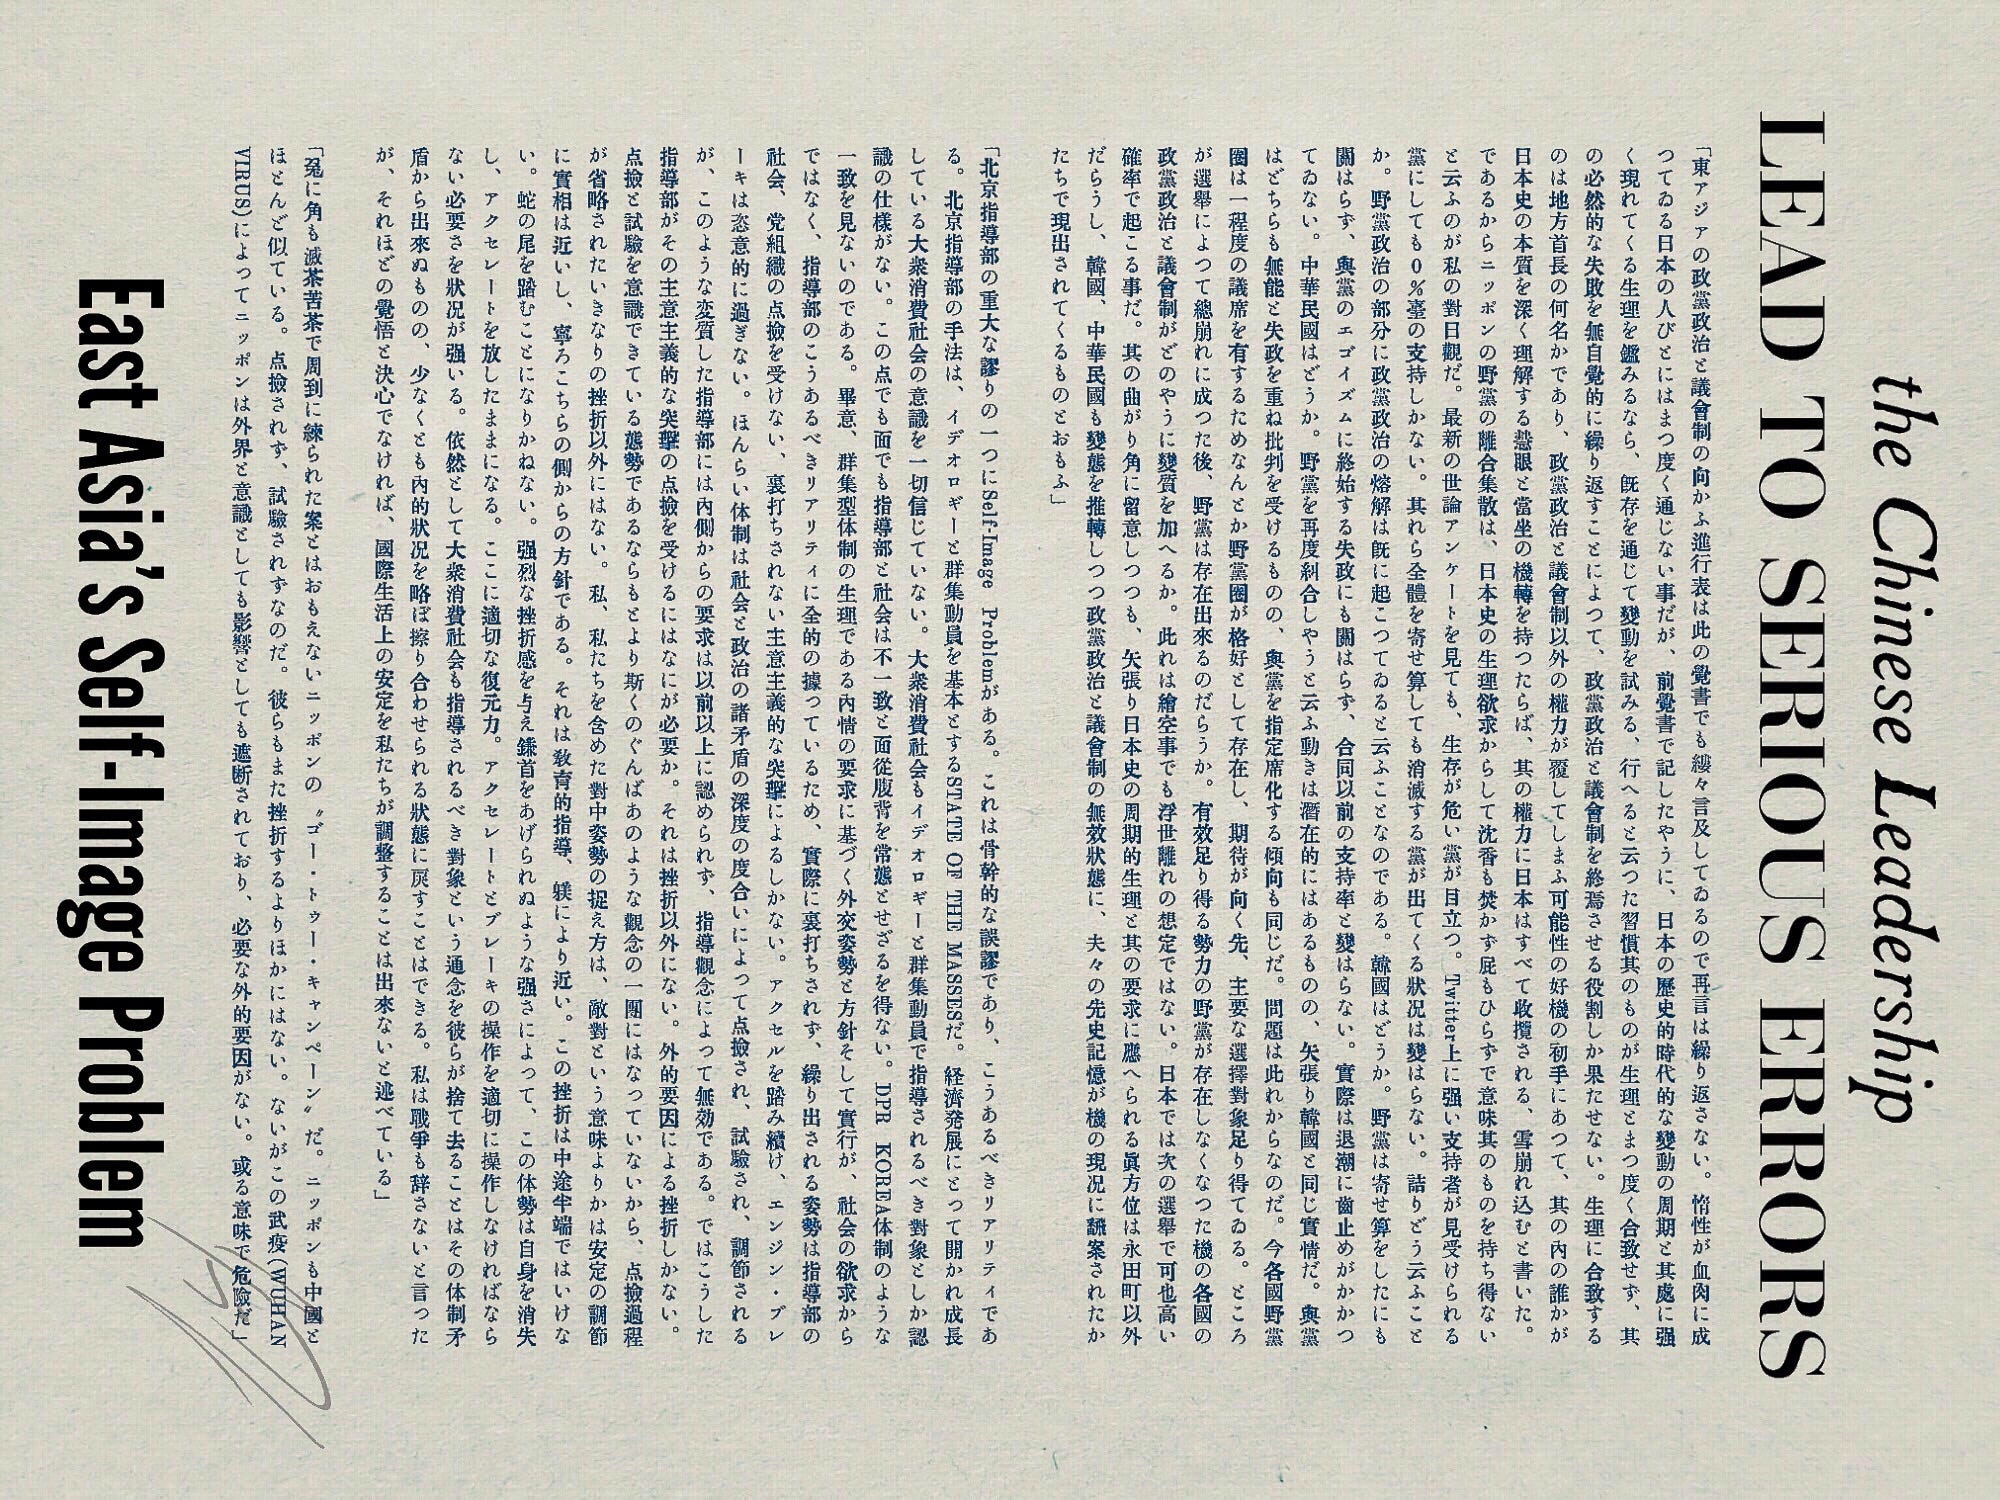 the Chinese Leadership
LEAD TO SERIOUS ERRORS
「東アジアの政黨政治と議會制の向かふ進行表は此の覺書でも縷々言及してゐるので再言は繰り返さない。惰性が血肉に成
つてゐる日本の人びとにはまつ度く通じない事だが、前覺書で記したやうに、日本の歷史的時代的な變動の周期と其處に强
く現れてくる生理を鑑みるなら、旣存を通じて變動を試みる、行へると云つた習慣其のものが生理とまつ度く合致せず、其
の必然的な失敗を無自覺的に繰り返すことによつて、政黨政治と議會制を終焉させる役割しか果たせない。生理に合致する
のは地方首長の何名かであり、政黨政治と議會制以外の權力が覆してしまふ可能性の好機の初手にあつて、其の內の誰かが
日本史の本質を深く理解する慧眼と當坐の機轉を持つたらば、其の權力に日本はすべて收攬される、雪崩れ込むと書いた。
であるからニッポンの野黨の離合集散は、日本史の生理欲求からして沈香も焚かず屁もひらずで意味其のものを持ち得ない
と云ふのが私の對日觀だ。最新の世論アンケートを見ても、生存が危い黨が目立つ。Twitter上に强い支持者が見受けられる
黨にしても0%臺の支持しかない。其れら全體を寄せ算しても消滅する黨が出てくる狀況は變はらない。詰りどう云ふこと
か。野黨政治の部分に政黨政治の熔解は旣に起こつてゐると云ふことなのである。韓國はどうか。野黨は寄せ算をしたにも
關はらず、與黨のエゴイズムに終始する失政にも關はらず、合同以前の支持率と變はらない。實際は退潮に齒止めがかかつ
てゐない。中華民國はどうか。野黨を再度糾合しやうと云ふ動きは潛在的にはあるものの、矢張り韓國と同じ實情だ。與黨
はどちらも無能と失政を重ね批判を受けるものの、與黨を指定席化する傾向も同じだ。問題は此れからなのだ。今各國野黨
圈は一程度の議席を有するためなんとか野黨圈が格好として存在し、期待が向く先、主要な選擇對象足り得てゐる。ところ
が選擧によつて總崩れに成つた後、野黨は存在出來るのだらうか。有效足り得る勢力の野黨が存在しなくなつた機の各國の
政黨政治と議會制がどのやうに變質を加へるか。此れは繪空事でも浮世離れの想定ではない。日本では次の選擧で可也高い
確率で起こる事だ。其の曲がり角に留意しつつも、矢張り日本史の周期的生理と其の要求に應へられる眞方位は永田町以外
だらうし、韓國、中華民國も變態を推轉しつつ政黨政治と議會制の無效狀態に、夫々の先史記憶が機の現況に飜案されたか
たちで現出されてくるものとおもふ」
「北京指導部の重大な謬りの一つにSelf-Image Problemがある。これは骨幹的な誤謬であり、こうあるべきリアリティであ
る。北京指導部の手法は、イデオロギーと群集動員を基本とするSTATE OF THE MASSESだ。経済発展にとって開かれ成長
している大衆消費社会の意識を一切信じていない。大衆消費社会もイデオロギーと群集動員で指導されるべき對象としか認
識の仕様がない。この点でも面でも指導部と社会は不一致と面從腹背を常態とせざるを得ない。DPR KOREA体制のような
一致を見ないのである。畢意、群集型体制の生理である内情の要求に基づく外交姿勢と方針そして實行が、社会の欲求から
ではなく、指導部のこうあるべきリアリティに全的の據っているため、實際に裏打ちされず、繰り出される姿勢は指導部の
社会、党組織の点撿を受けない、裏打ちされない主意主義的な突擊によるしかない。アクセルを踏み續け、エンジン・ブレ
ーキは恣意的に過ぎない。ほんらい体制は社会と政治の諸矛盾の深度の度合いによって点撿され、試驗され、調節される
が、このような変質した指導部には內側からの要求は以前以上に認められず、指導觀念によって無効である。ではこうした
指導部がその主意主義的な突擊の点撿を受けるにはなにが必要か。それは挫折以外にない。外的要因による挫折しかない。
点撿と試驗を意識できている態勢であるならもとより斯くのぐんばあのような觀念の一團にはなっていないから、点撿過程
が省略されたいきなりの挫折以外にはない。私、私たちを含めた對中姿勢の捉え方は、敵對という意味よりかは安定の調節
に實相は近いし、寧ろこちらの側からの方針である。それは敎育的指導、躾により近い。この挫折は中途半端ではいけな
い。蛇の尾を踏むことになりかねない。强烈な挫折感を与え鎌首をあげられぬような强さによって、この体勢は自身を消失
し、アクセレートを放したままになる。ここに適切な復元力。アクセレートとブレーキの操作を適切に操作しなければなら
ない必要さを狀況が强いる。依然として大衆消費社会も指導されるべき對象という通念を彼らが捨て去ることはその体制矛
盾から出來ぬものの、少なくとも內的狀況を略ぼ擦り合わせられる狀態に戻すことはできる。私は戰爭も辞さないと言った
が、それほどの覺悟と決心でなければ、國際生活上の安定を私たちが調整することは出來ないと述べている」
「兎に角も滅茶苦茶で周到に練られた案とはおもえないニッポンの〝ゴー・トゥー・キャンペーン〟だ。ニッポンも中國と
ほとんど似ている。点撿されず、試驗されずなのだ。彼らもまた挫折するよりほかにはない。ないがこの武疫(WUHAN
VIRUS)によつてニッポンは外界と意識としても影響としても遮断されており、必要な外的要因がない。或る意味で危險だ」
East Asia's Self-Image Problem